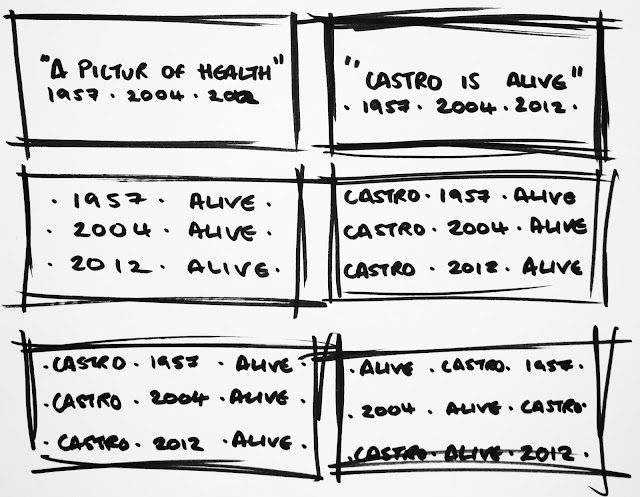 "A PICTUR OF HEALTH"
1957 · 2004 · 2012
"CASTRO IS ALIVE"
· 1957 · 2004 · 2012 ·
· 1957 · ALIVE ·
· 2004 · ALIVE ·
· 2012 · ALIVE ·
CASTRO · 1957 · ALIVE
CASTRO · 2004 · ALIVE
CASTRO · 2012 · ALIVE
· CASTRO · 1957 · ALIVE ·
· CASTRO · 2004 · ALIVE ·
· CASTRO · 2012 · ALIVE ·
· ALIVE · CASTRO · 1957 ·
· 2004 · ALIVE · CASTRO ·
· CASTRO · ALIVE · 2012 ·